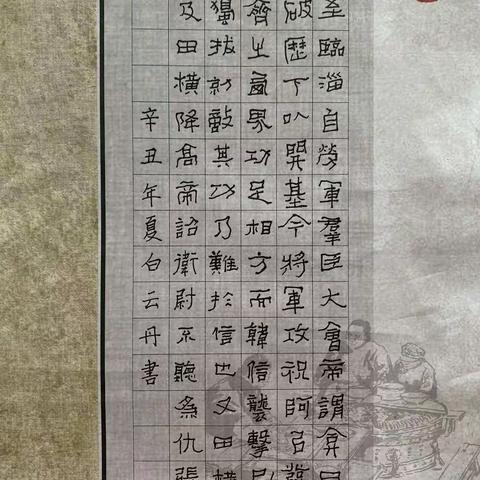 至臨淄自勞軍羣臣大會帝謂弇曰
破歷下以開基今將軍攻祝阿以發
齊之西界功足相方而韓信襲擊已
獨拔勍敵其功乃難扵信也又田橫
及田橫降高帝詔衛尉不聽為仇張
辛丑年夏白云丹書